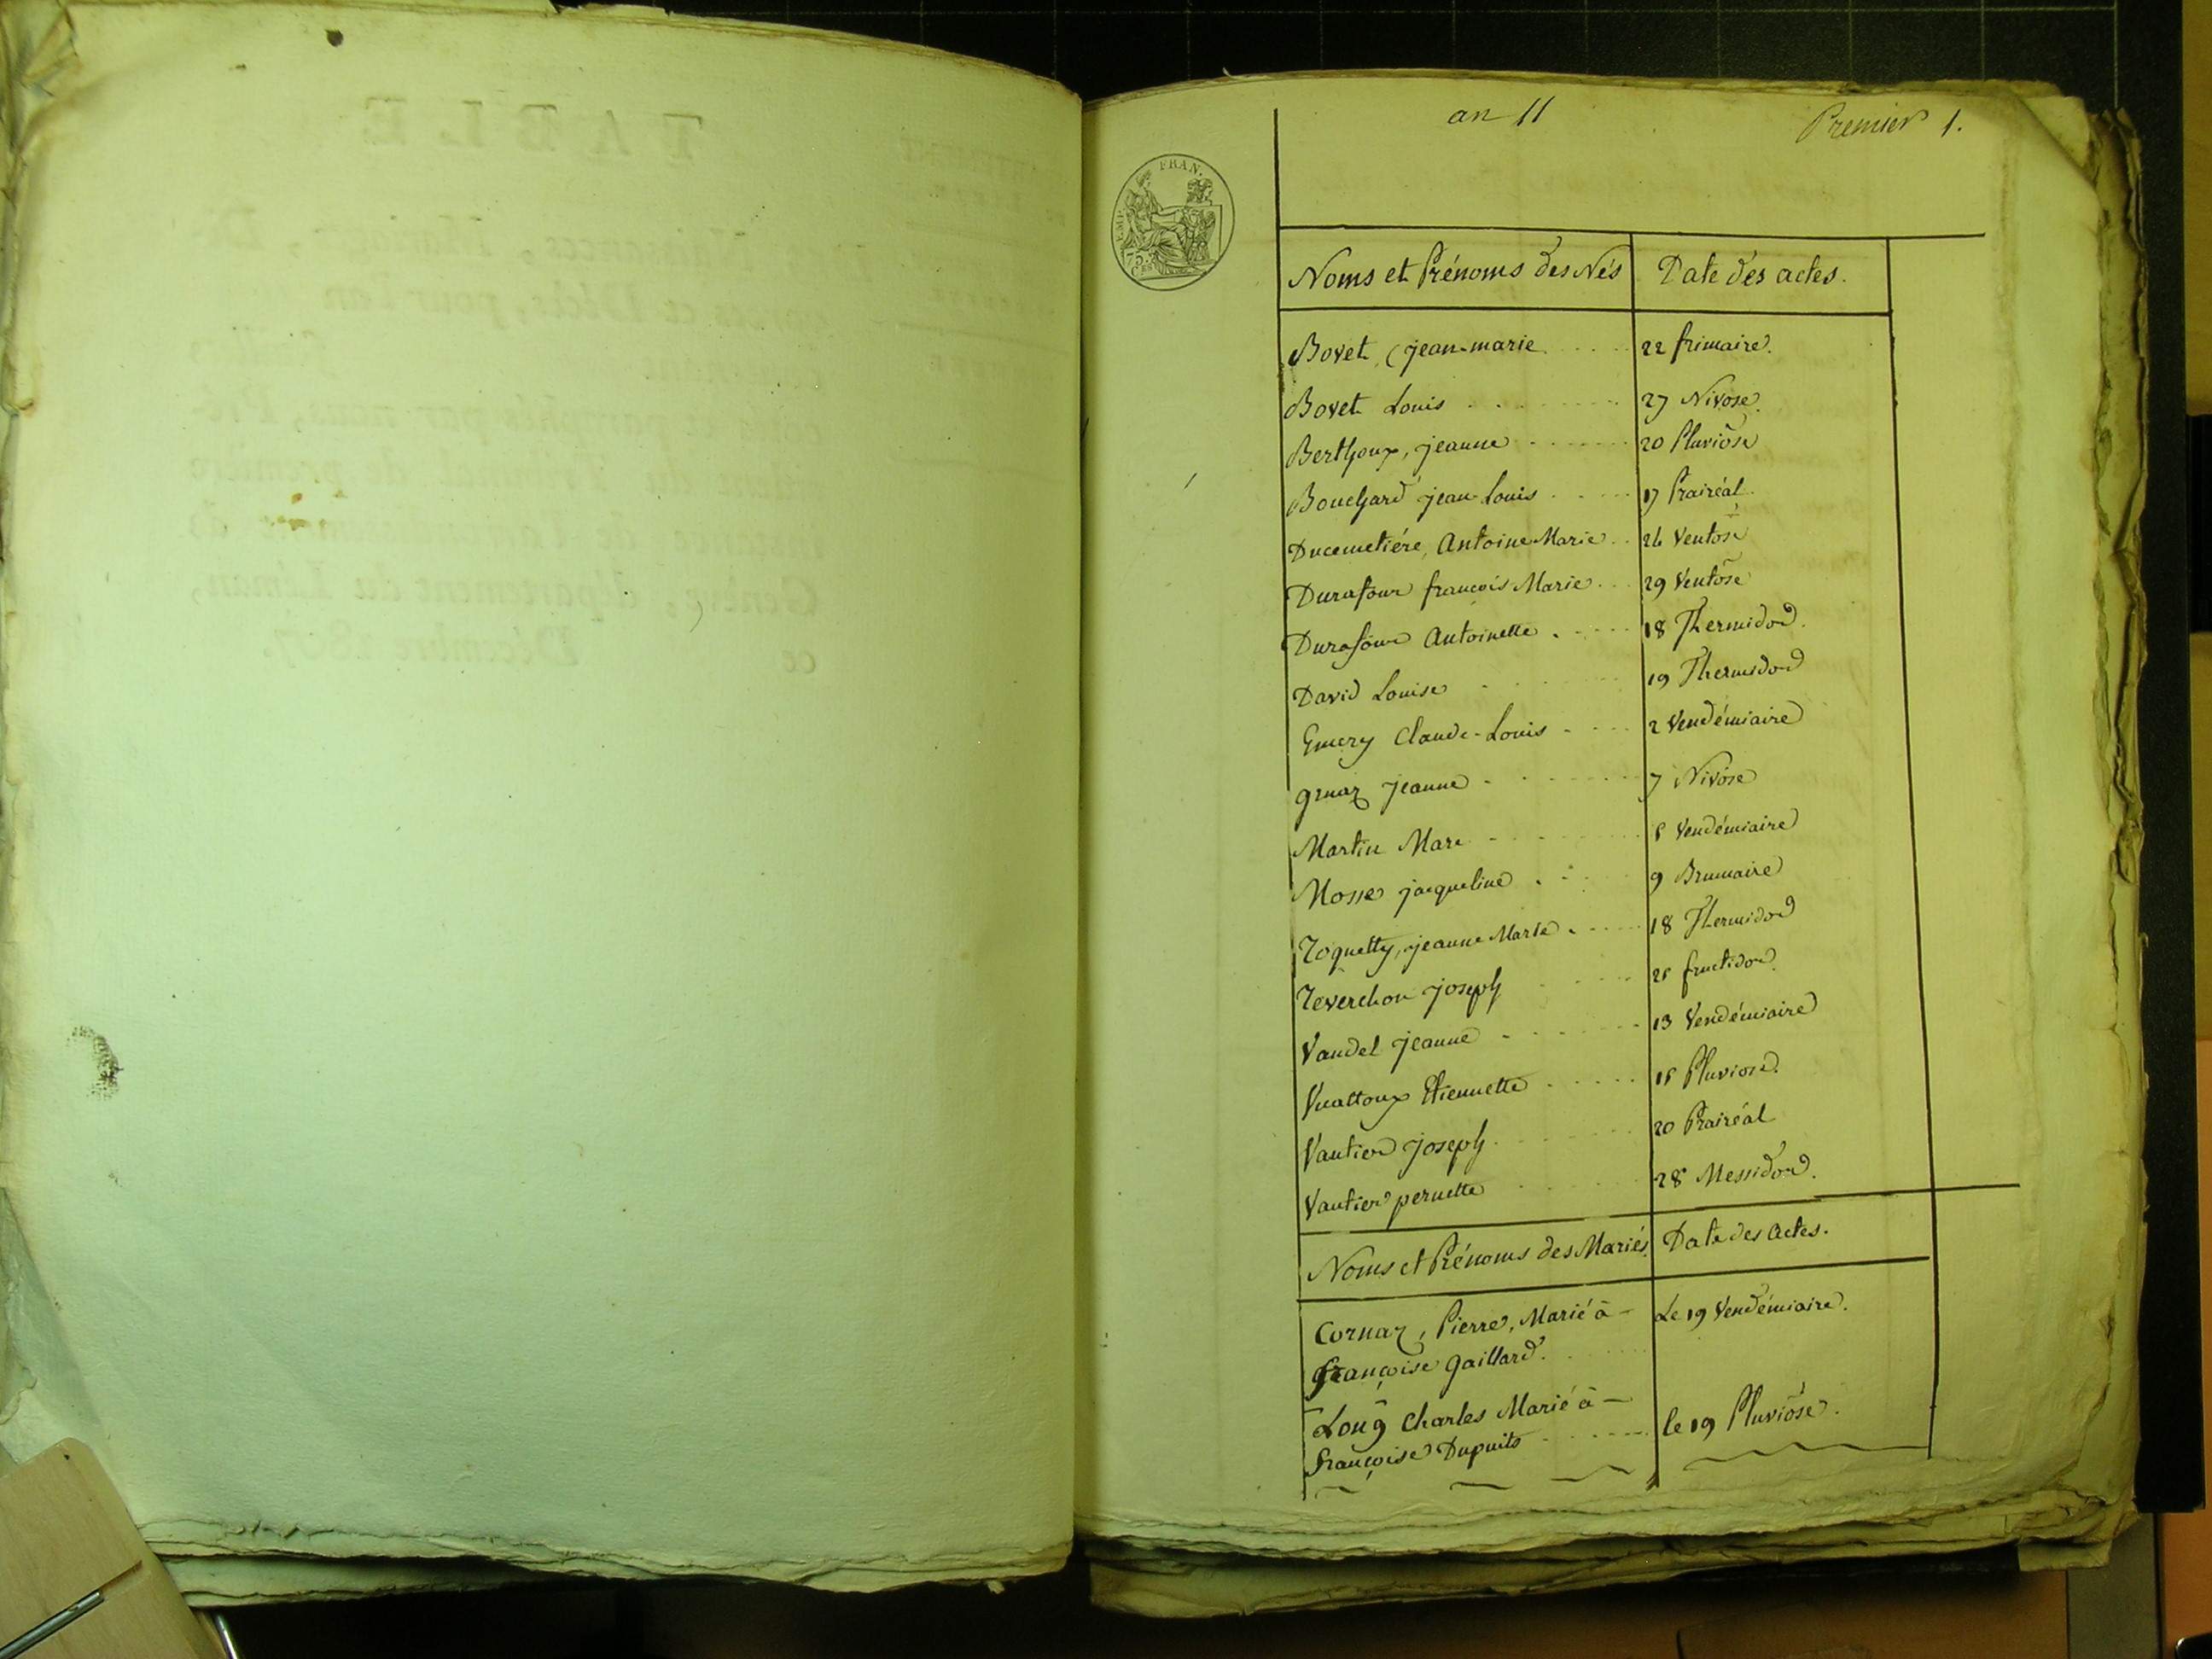 an 11
Premier 1.
FRAN.
EMP.
75.
Noms et Prénoms des Nés Date des actes.
Bovet, jean-marie 22 frimaire.
Bovet Louis 27 Nivose.
Berthoux, jeanne 20 Pluviôse
Bouchard jean Louis 17 Prairéal
Ducemetiére, Antoine Marie 24 Ventose
Durafour françois Marie 29 Ventôse
Durafour Antoinette 18 Thermidor.
David Louise 19 Thermidor
Emery Claude-Louis 2 Vendémiaire
gruaz jeanne 7 Nivôse
Martin Marc Vendémiaire
Mosse jacqueline 9 Brumaire
Roquetty, jeanne Marie 18 Thermidor
Reverchon joseph fructidor.
Vandel jeanne 13 Vendémiaire
Vuattoux Etiennette Pluviose.
Vautier joseph 20 Prairéal
Vautier pernette 28 Messidor.
Noms et Prénoms des Mariés. Date des Actes.
Cornaz, Pierre, Marié à Le 19 Vendémiaire.
françoise gaillard.
Long Charles Marié à
françoise Dupuits le 19 Pluviôse.